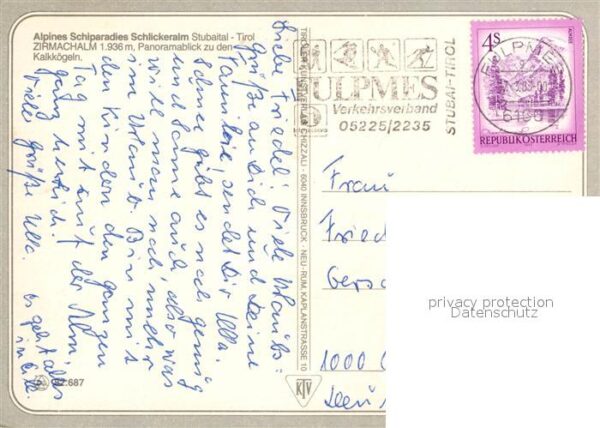 Alpines Schiparadies Schlickeralm Stubaital - Tirol
ZIRMACHALM 1.936 m, Panoramablick zu den
Kalkkögeln.
Liebe Friedel! Viele Urlaubs=
grüße an Dich und Deine
Familie sendet Dir Ulla.
Schnee gibt es noch genug
und Sonne auch, also was
will man noch mehr
im Urlaub. Bin mit
den Kindern den ganzen
Tag mit auf der Alm.
ganz herzlich
Viele Grüße Ulla.
Es geht alles
82.687
TIROLER KUNSTVERLAG CHIZZALI · 6040 INNSBRUCK - NEU-RUM, KAPLANSTRASSE 10
KTV
FULPMES
Verkehrsverband
05225/2235
STUBAI-TIROL
FULPMES
6166
4S
REPUBLIK ÖSTERREICH
Frau
Fried
Gersc
1000
privacy protection
Datenschutz